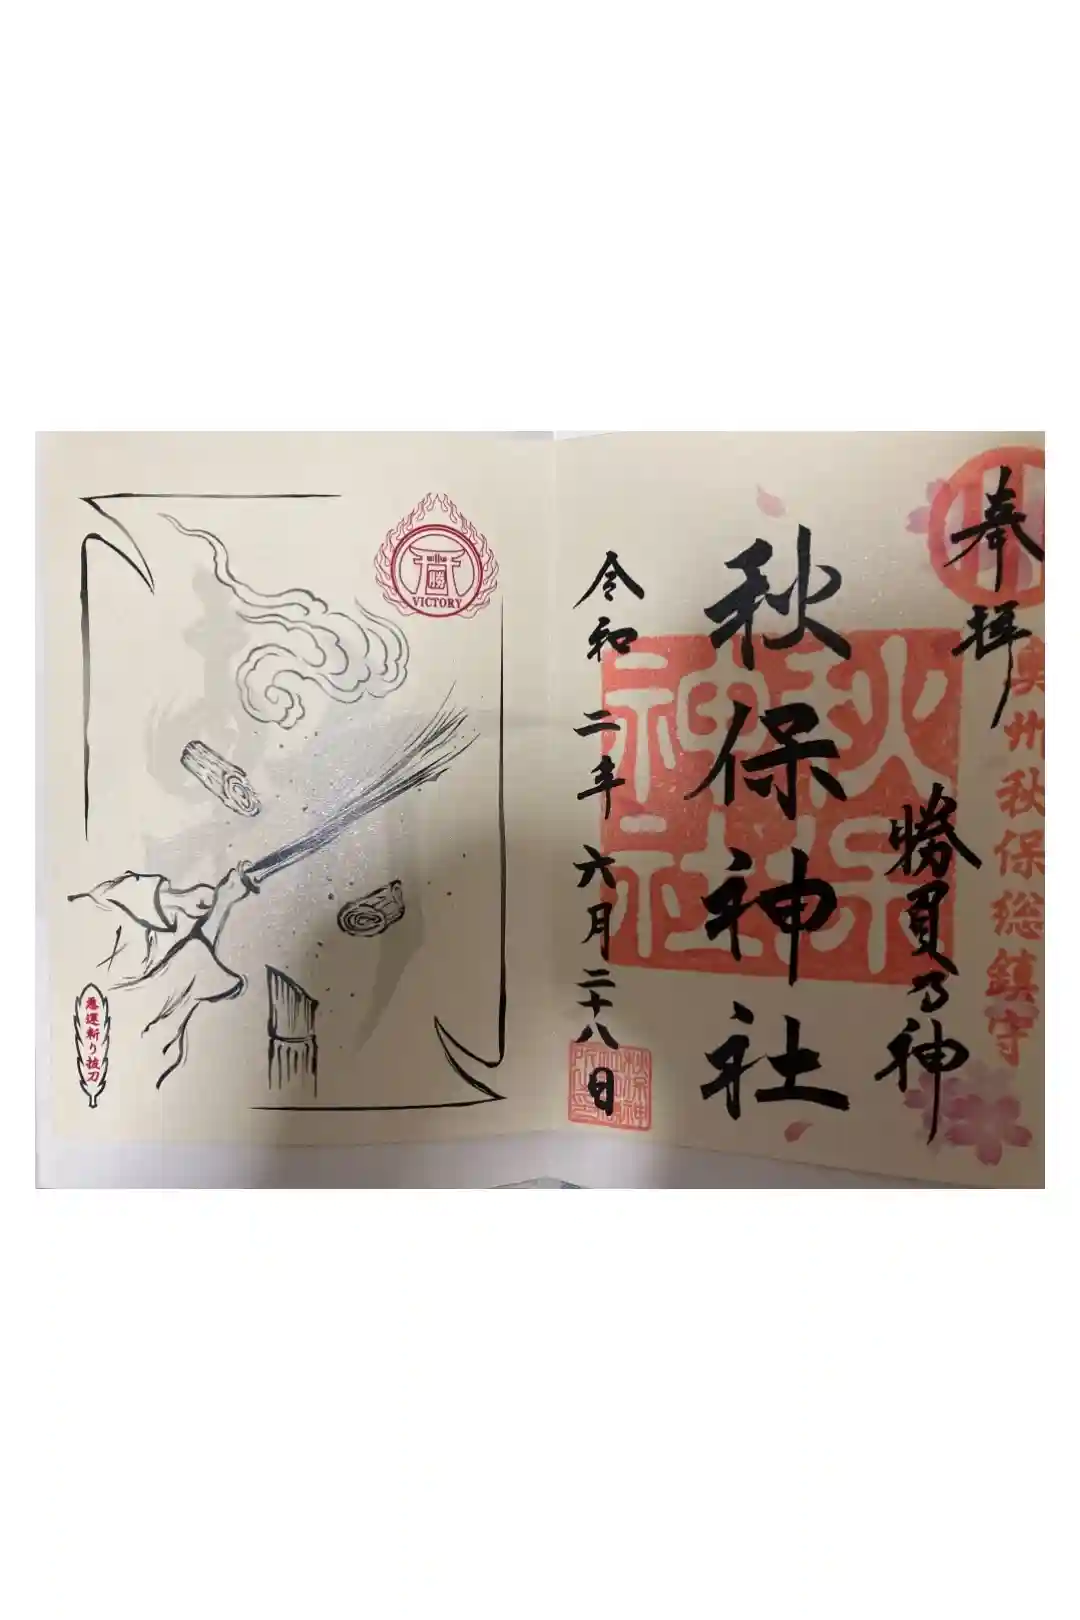 奉拝
奥州秋保総鎮守
勝負乃神
秋保神社
秋保
神社
令和二年六月二十八日
勝
VICTORY
悪運斬り抜刀